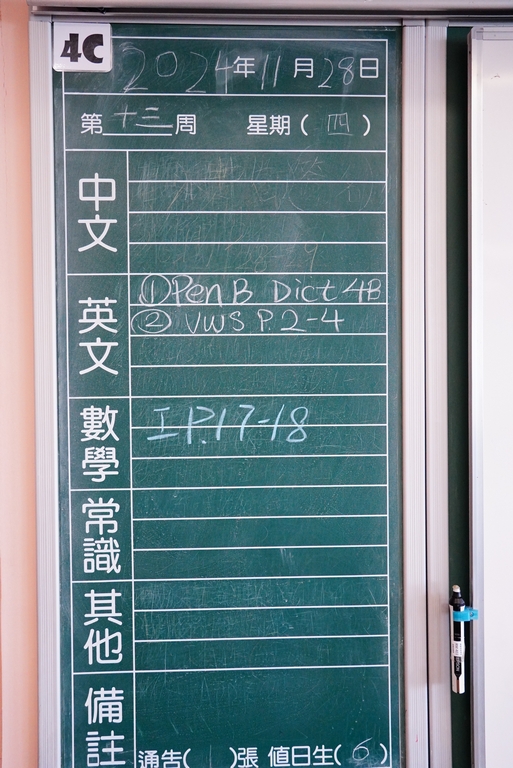 4C
2024年11月28日
第十三周 星期(四)
中文
英文
①Pen B Dict 4B
② VWS P.2-4
數學
I P.17-18
常識
其他
備註
通告( )張 值日生(6)